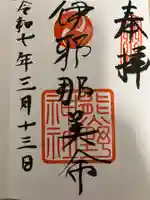 奉拝
伊邪那美命
令和七年三月十三日